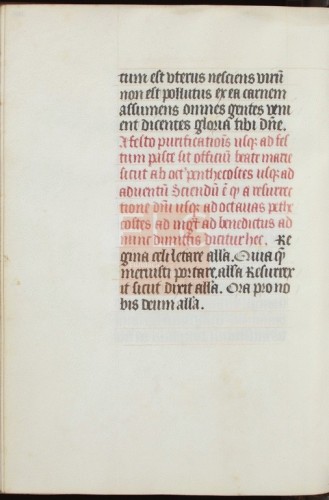 tum est vterus nesciens virū
non est pollutus ex ea carnem
assumens omnes gentes veni
ent dicentes gloria tibi dn̄e.
A festo purificationis vsq; ad fes
tum pasce sit officiū beate marie
sicut ab oct' penthecostes vsq; ad
aduentū Sciendū ē q̄ a resurrec
tione dn̄i vsq; ad octauas pethe
costes ad mḡt ad benedictus ad
nunc dimittis dicitur hec. Re
gina celi letare all'a. Quia q̄
meruisti portare, all'a Resurrex
it sicut dixit all'a. Ora pro no
bis deum all'a.